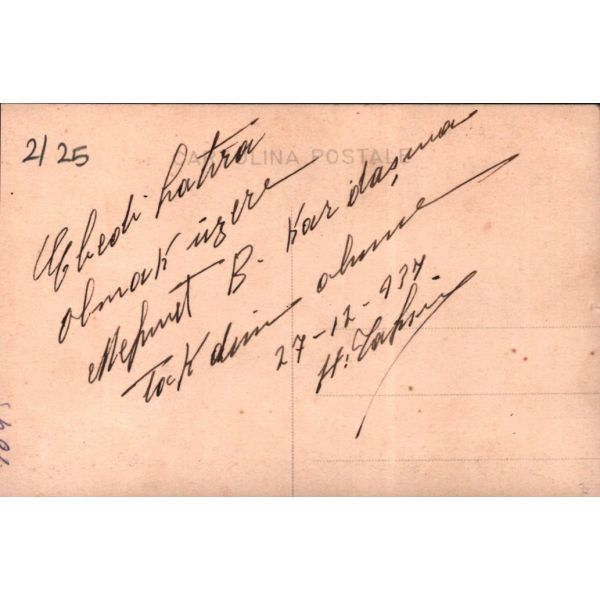 2/25
CARTOLINA POSTALE
Ebedi hatıra
olmak üzere
Mehmet B. Kardaşıma
Takdim olunur
27-12-937.
H. Tahsin